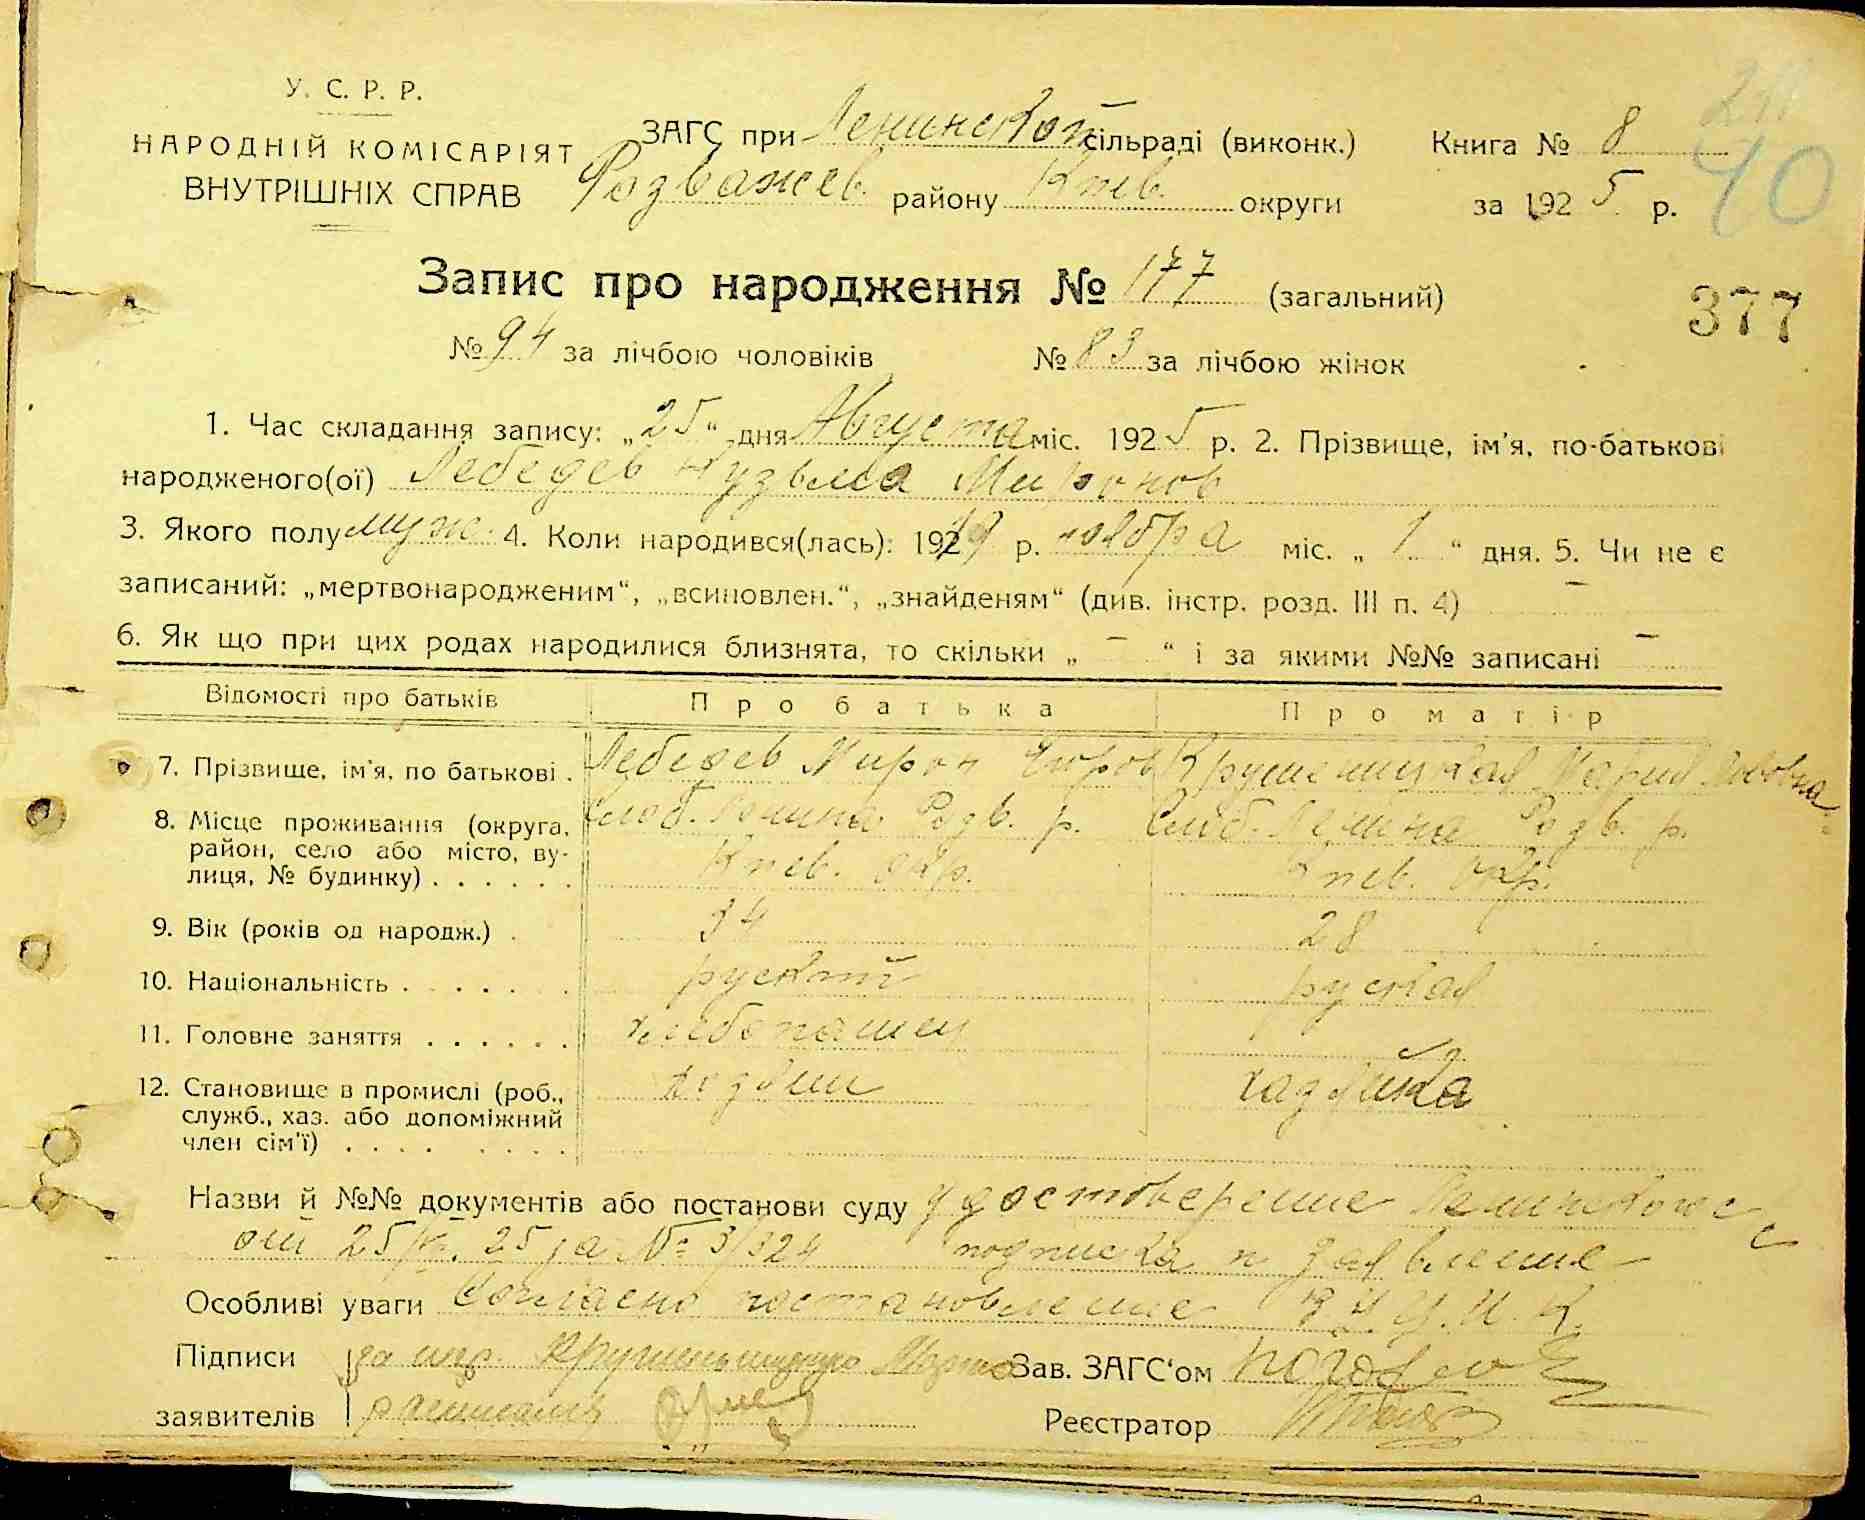 У. С. Р. Р.
НАРОДНІЙ КОМІСАРІЯТ
ВНУТРІШНІХ СПРАВ
ЗАГС при Ленинской сільраді (виконк.) Книга № 8
Розважев. району Киев. округи за 1925 р.
40
Запис про народження № 177 (загальний)
377
№ 94 за лічбою чоловіків № 83 за лічбою жінок
1. Час складання запису: „25“ дня Августа міс. 1925 р. 2. Прізвище, ім'я, по-батькові
народженого(ої) Лебедев Кузьма Миронов
3. Якого полу муж. 4. Коли народився(лась): 1919 р. ноября міс. „1“ дня. 5. Чи не є
записаний: „мертвонародженим“, „всиновлен.“, „знайденям“ (див. інстр. розд. III п. 4) –
6. Як що при цих родах народилися близнята, то скільки „ – “ і за якими №№ записані –
Відомості про батьків Про батька Про матір
7. Прізвище, ім'я, по батькові . Лебедев Мирон Крушеницкая Мария
8. Місце проживання (округа, район, село або місто, вулиця, № будинку) . . . . . .
Слоб. Ленина Розв. р. Слоб. Ленина Розв. р.
Киев. окр. Киев. окр.
9. Вік (років од народж.) . 34 28
10. Національність . . . . . . . руский руская
11. Головне заняття . . . . . . хлебопашец
12. Становище в промислі (роб., служб., хаз. або допоміжний член сім'ї) . . . . . . . .
хозяин хазяйка
Назви й №№ документів або постанови суду удостоверение Ленинского с с
от 25/VIII. 25 за № 3/324 подписка и заявление
Особливі уваги Согласно постановление В.У.Ц.И.К.
Підписи за негр. Мария Зав. ЗАГС'ом
заявителів расписался Реєстратор